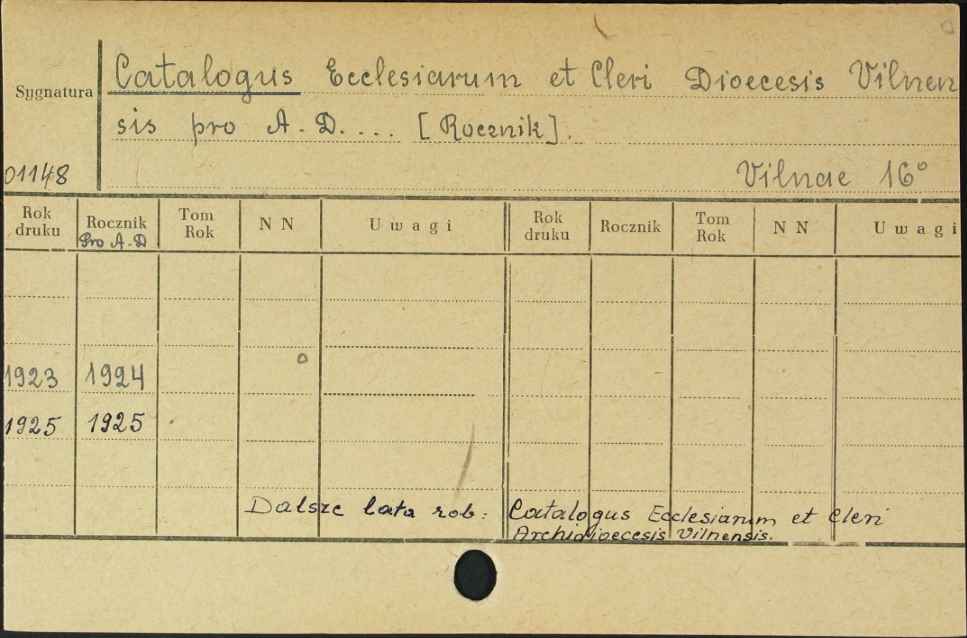 Sygnatura
Catalogus Ecclesiarum et Cleri Dioecesis Vilnen
sis pro A.D. ... [Rocznik].
01148
Vilnae 16°
Rok druku Rocznik Pro A.D Tom Rok NN Uwagi Rok druku Rocznik Tom Rok NN Uwagi
1923 1924
1925 1925
Dalsze lata rob: Catalogus Ecclesiarum et Cleri
Archidioecesis Vilnensis.